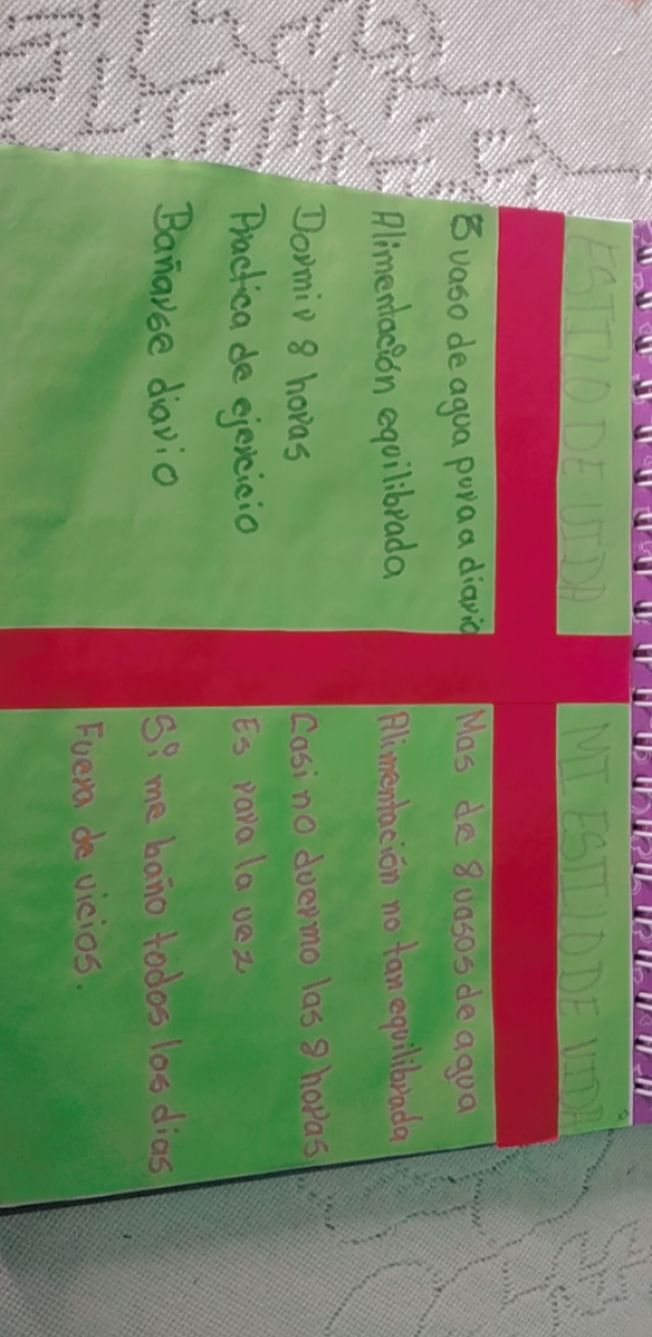 ESTILO DE VIDA
8 vaso de agua pura a diario
Alimentación equilibrada
Dormir 8 horas
Practica de ejercicio
Bañarse diario
MI ESTILO DE VIDA
Mas de 8 vasos de agua
Alimentación no tan equilibrada
Casi no duermo las 8 horas
Es rara la vez
Si me baño todos los dias
Fuera de vicios.